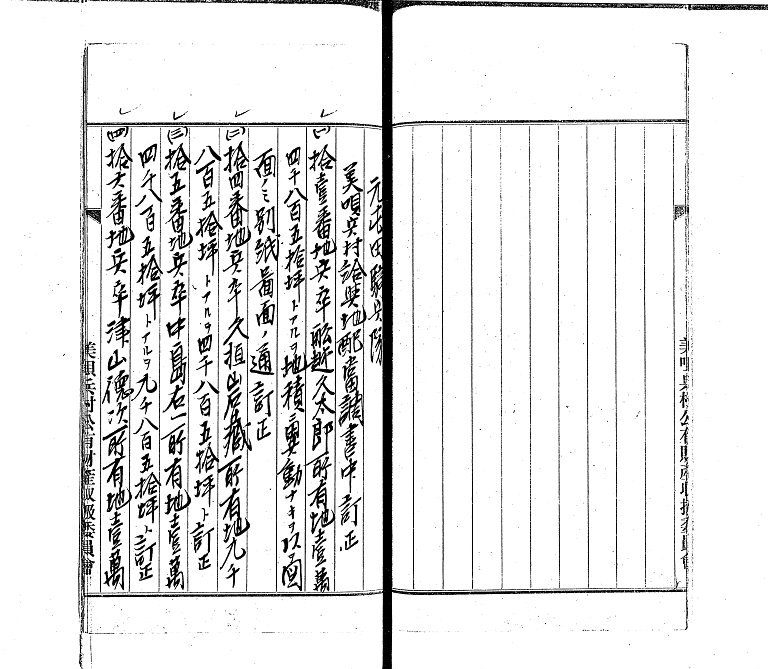 元屯田騎兵隊
美唄兵村給與地配當調書中訂正
(一)拾壹番地兵卒舩越久太郎所有地壹萬
四千八百五拾坪トアルヲ地積異動ナキヲ以テ図
面ミ別紙畧面ノ通訂正
(二)拾四番地兵卒久恒岩藏所有地九千
八百五拾坪トアルヲ四千八百五拾坪ト訂正
(三)拾五番地兵卒中島右一所有地壹萬
四千八百五拾坪トアルヲ九千八百五拾坪ト訂正
(四)拾六番地兵卒津山德次所有地壹萬
美唄兵村公有財産取扱委員會
美唄兵村公有財産取扱委員會